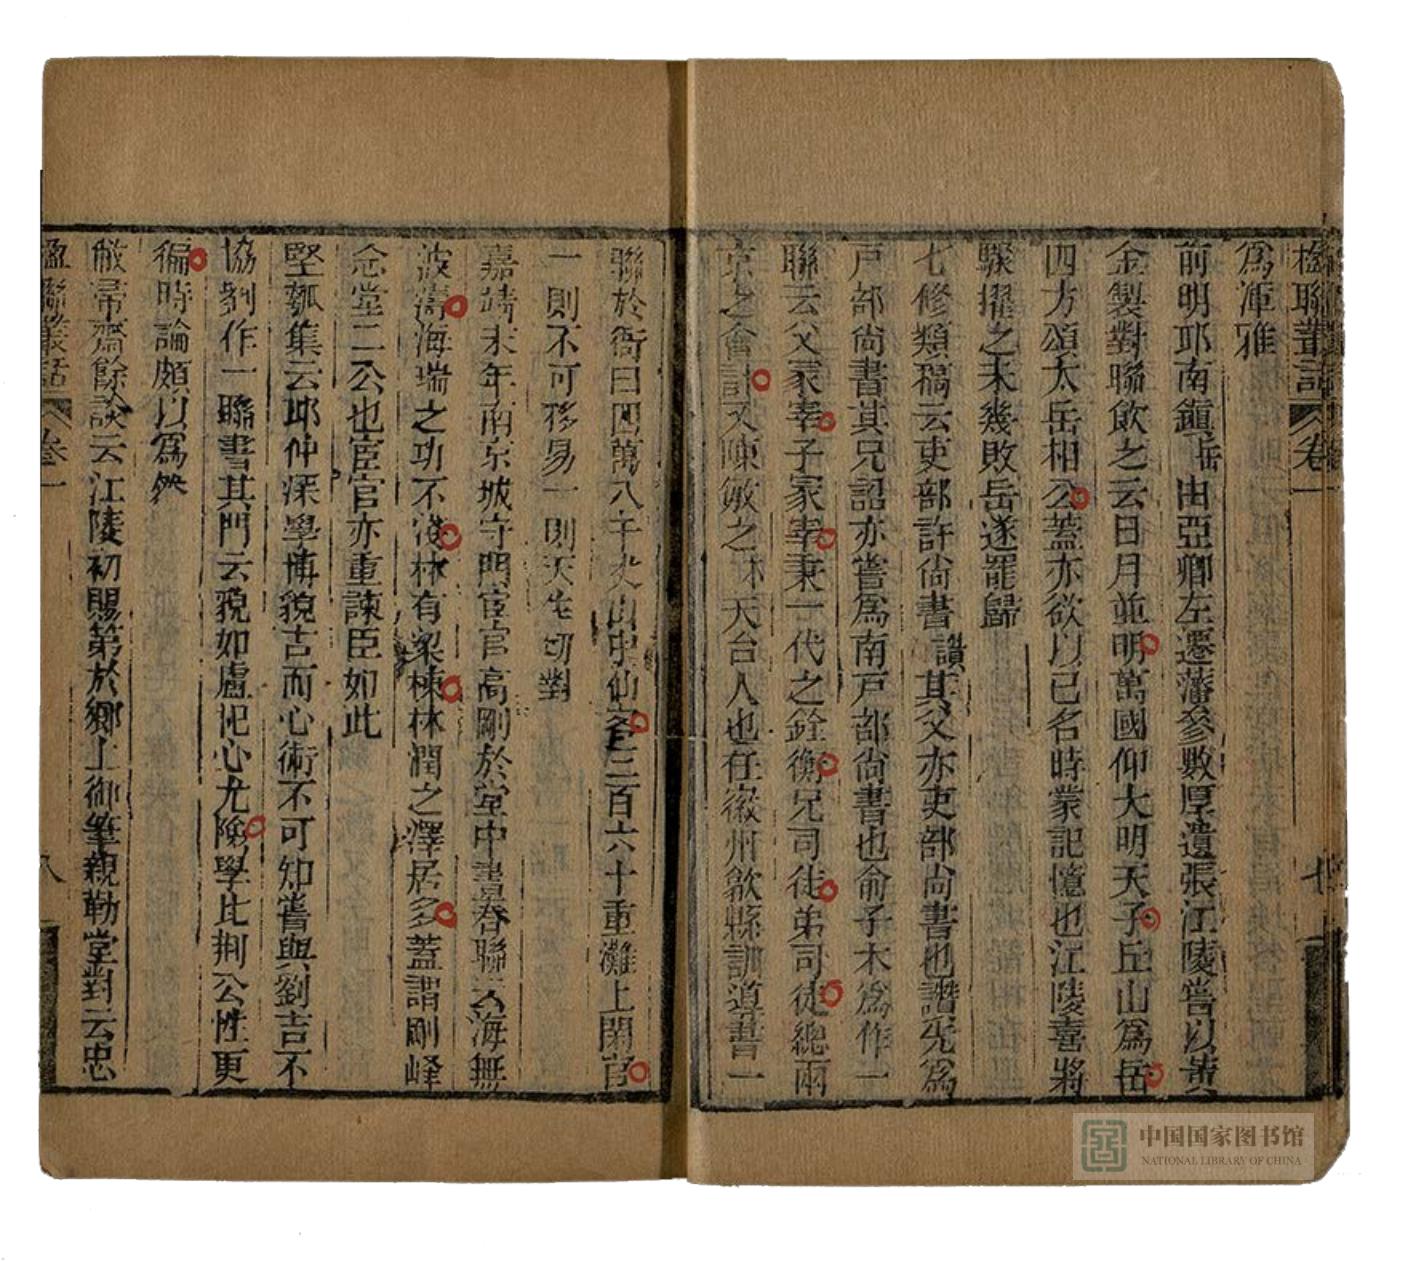 楹聯叢話 卷一 七
爲渾雅
前明邱南鎭岳由亞卿左遷藩參數厚遺張江陵嘗以黃
金製對聯飮之云日月並明萬國仰大明天子丘山爲岳
四方頌太岳相公蓋亦欲以己名時蒙記憶也江陵喜將
驟擢之未幾敗岳遂罷歸
七修類稿云吏部許尙書讚其父亦吏部尙書也讚旣爲
戸部尙書其兄詔亦嘗爲南戸部尙書也俞子木爲作一
聯云父冢宰子冢宰秉一代之銓衡兄司徒弟司徒總兩
京之會計又陳敏之 天台人也任徽州歙縣訓道書一
聯於衙曰四萬八千丈山中仙客三百六十重灘上閑官
一則不可移易一則天生切對
嘉靖末年南京城守門宦官高剛於堂中書春聯云海無
波濤海瑞之功不淺林有梁棟林潤之澤居多蓋謂剛峰
念堂二公也宦官亦重諫臣如此
堅瓠集云邱仲深學博貌古而心術不可知嘗與劉吉不
協劉作一聯書其門云貌如盧杞心尤險學比荆公性更
偏時論頗以爲然
敝帚齋餘談云江陵初賜第於鄉上御筆親勒堂對云忠
楹聯叢話 卷一 八
中国国家图书馆
NATIONAL LIBRARY OF CHINA